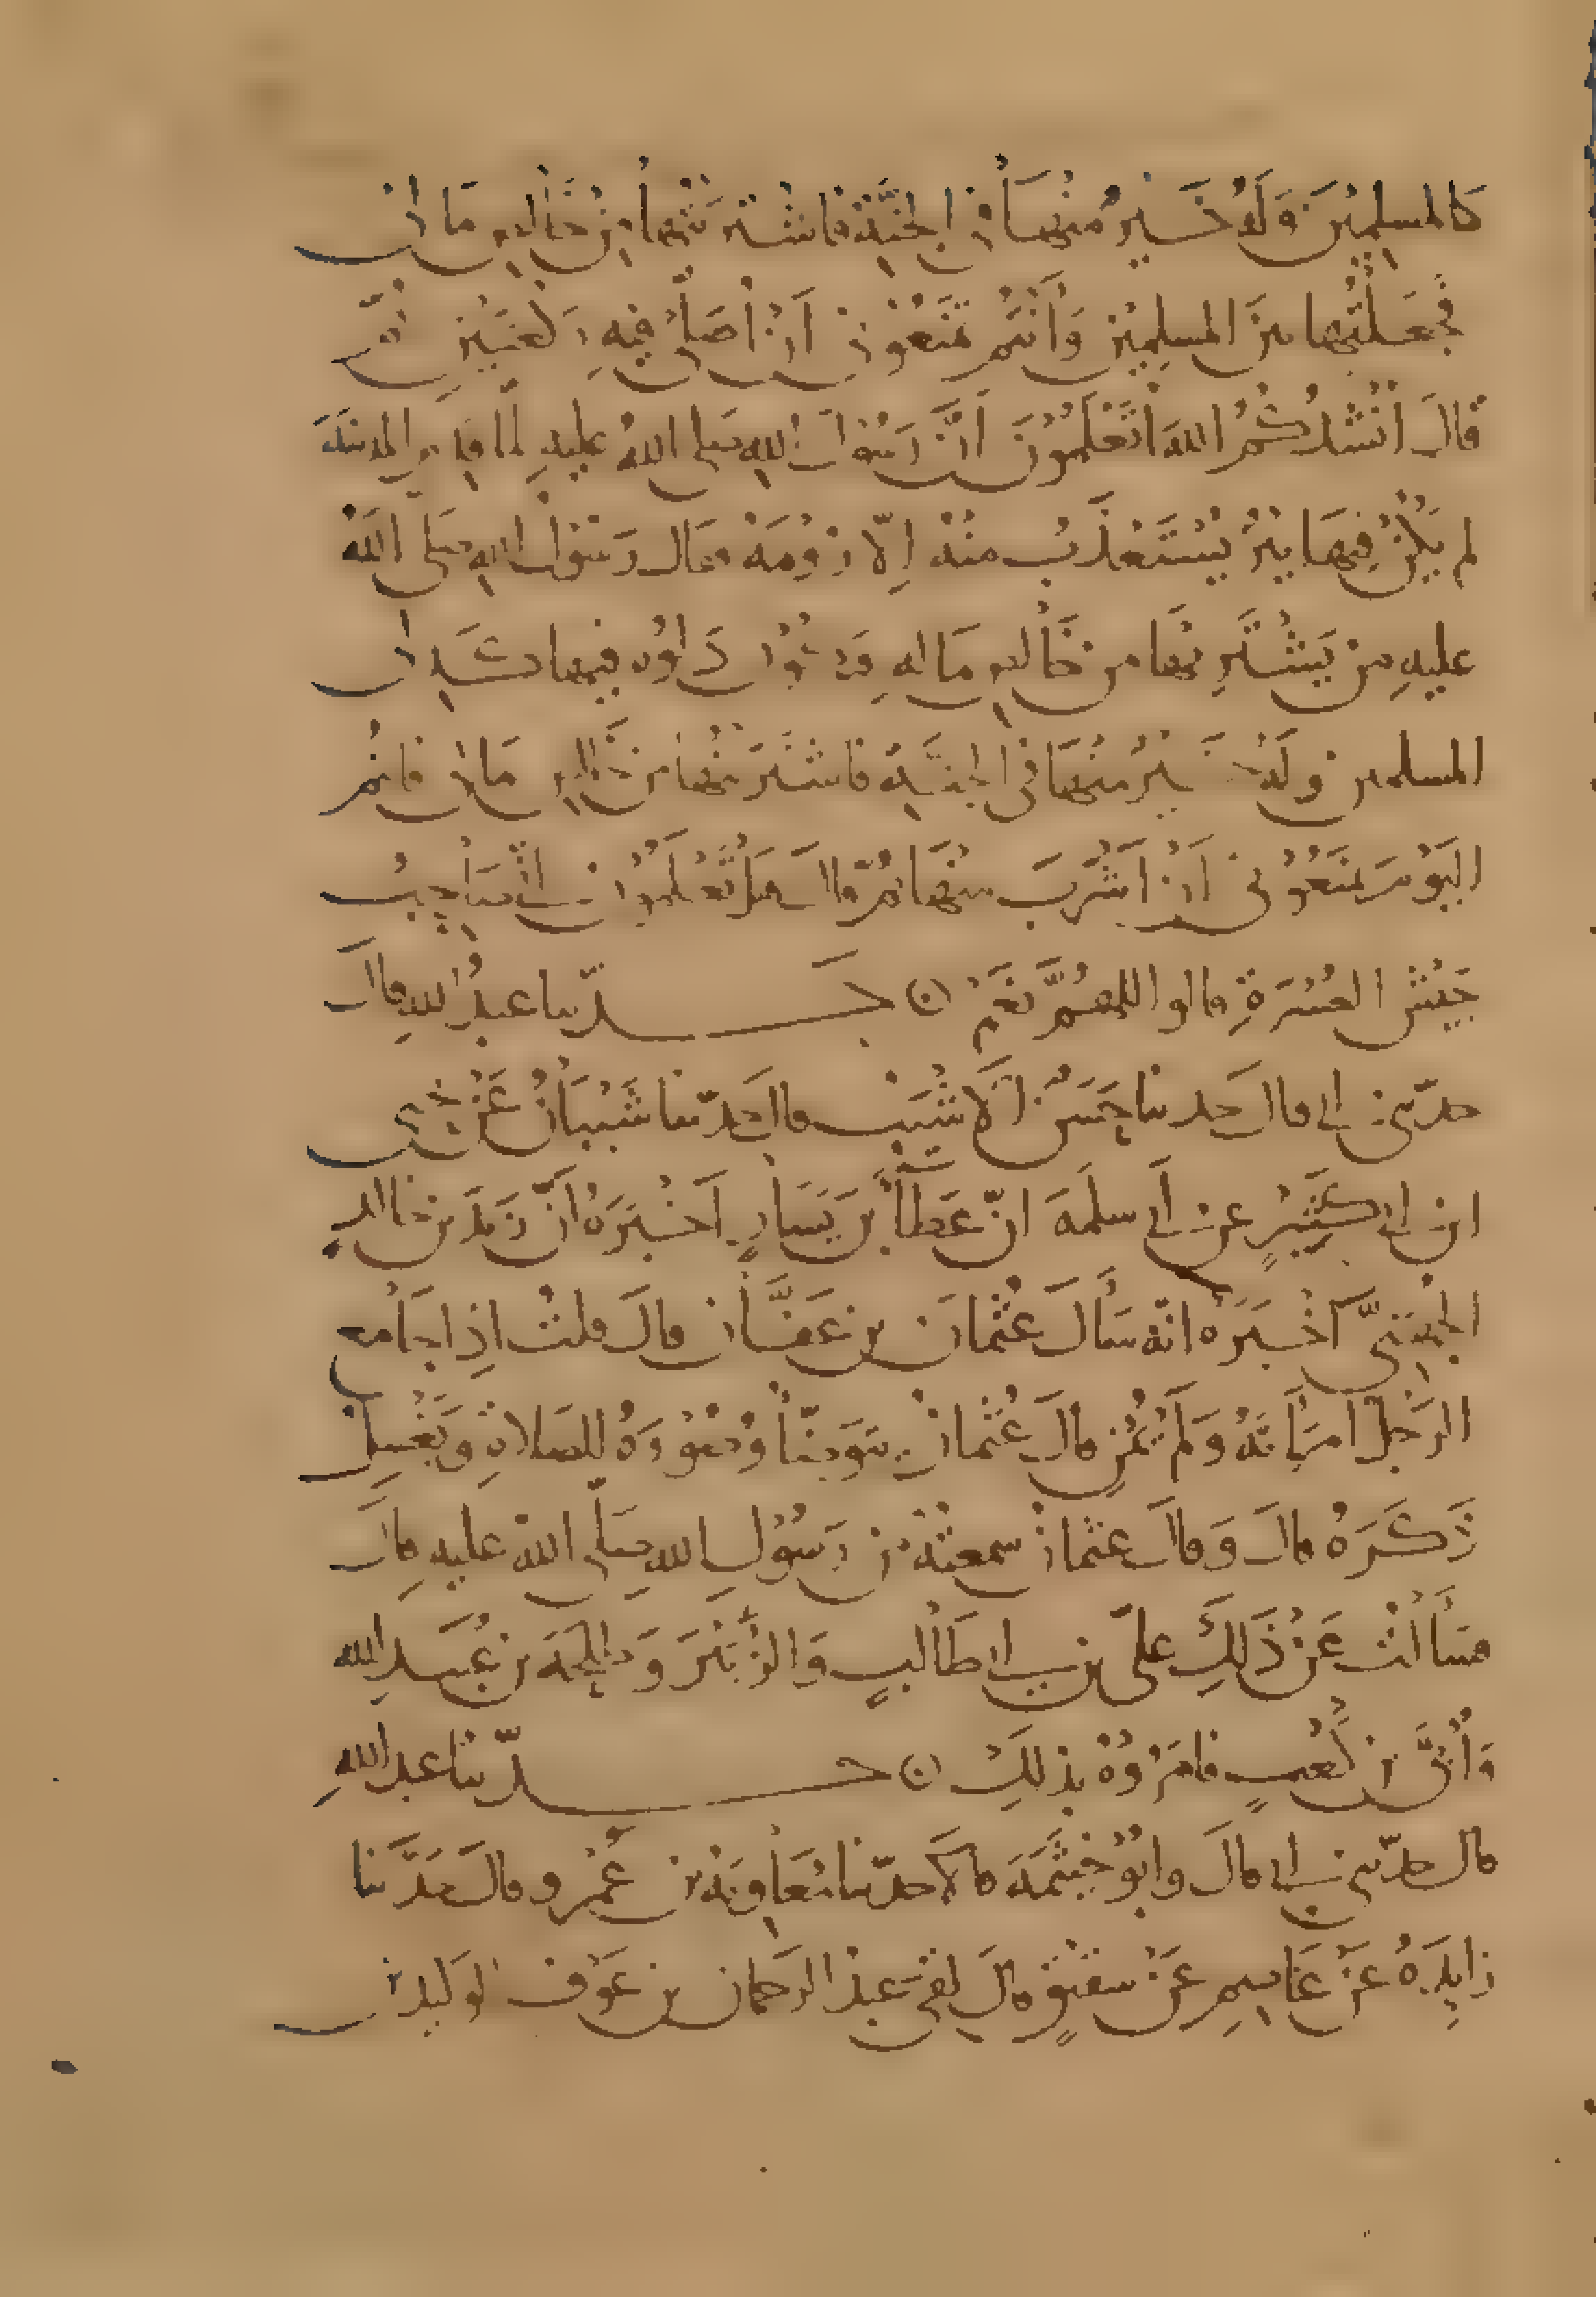 كالمسلمين وله خَيْرٌ منها في الجنة فاشتريتها من خالص مالي
فجعلتها بين المسلمين وأنتم تمنعوني أن أصلي فيه ركعتين ثم
قال أنشدكم الله أتعلمون أن رسول الله صلى الله عليه لما قدم المدينة
لم يكن فيها بئر يستعذب منه إلا رومة فقال رسول الله صلى الله
عليه من يشتريها من خالص ماله فيكون دلوه فيها كدلي
المسلمين وله خير منها في الجنة فاشتريتها من خالص مالي فانتم
اليوم تمنعوني أن أشرب منها ثم قال هل تعلمون اني صاحب
جيش العسرة قالوا اللهم نعم ○ حدثنا عبد الله قال
حدثني ابي قال حدثنا حسن الأشيب قال حدثنا شيبان عن يحيى
ابن ابي كثير عن ابي سلمة ان عطاء بن يسار أخبره أن زيد بن خالد
الجهني أخبره انه سأل عثمان بن عفان قال قلت إذا جامع
الرجل امرأته ولم يمن قال عثمان يتوضأ وضوءه للصلاة ويغسل
ذكره قال وقال عثمان سمعته من رسول الله صلى الله عليه قال
فسألت عن ذلك علي بن ابي طالب والزبير وطلحة بن عبيد الله
وأبي بن كعب فامروه بذلك ○ حدثنا عبد الله
قال حدثني ابي قال وابو خيثمة قالا حدثنا معاوية بن عمرو قال حدثنا
زايدة عن عاصم عن شقيق قال لقي عبد الرحمان بن عوف الوليد بن